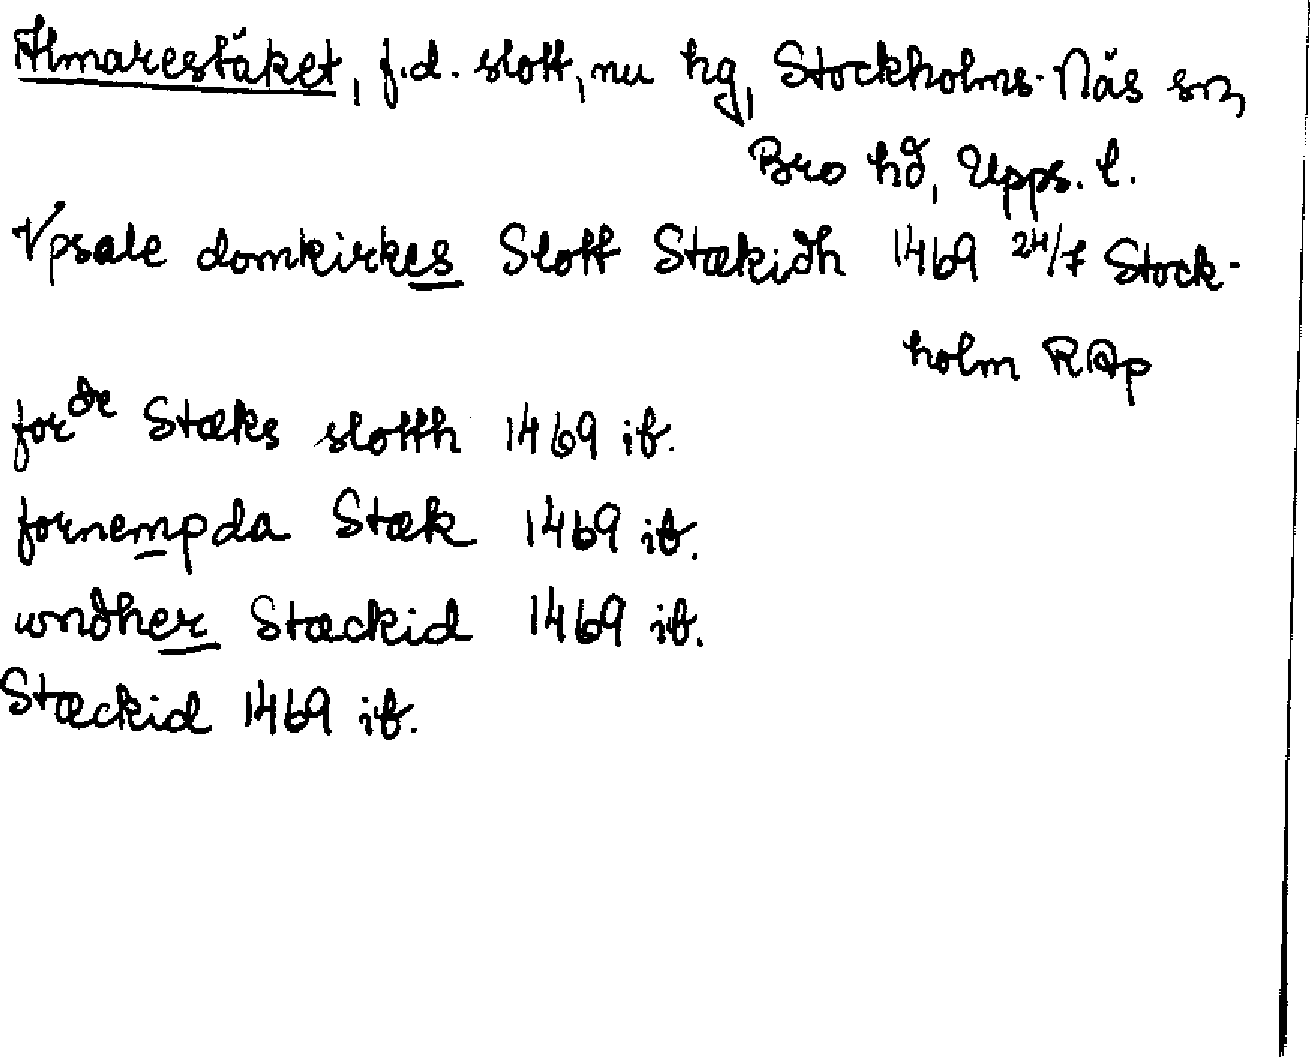 Almarestäket, f.d. slott, nu hg, Stockholms-Näs sn,
Bro hd, Upps. l.
Vpsale domkirkes Slott Stækidh 1469 24/7 Stock-
holm RAp
forde Stæks slotth 1469 ib.
fornempda Stæk 1469 ib.
wndher Stæckid 1469 ib.
Stæckid 1469 ib.